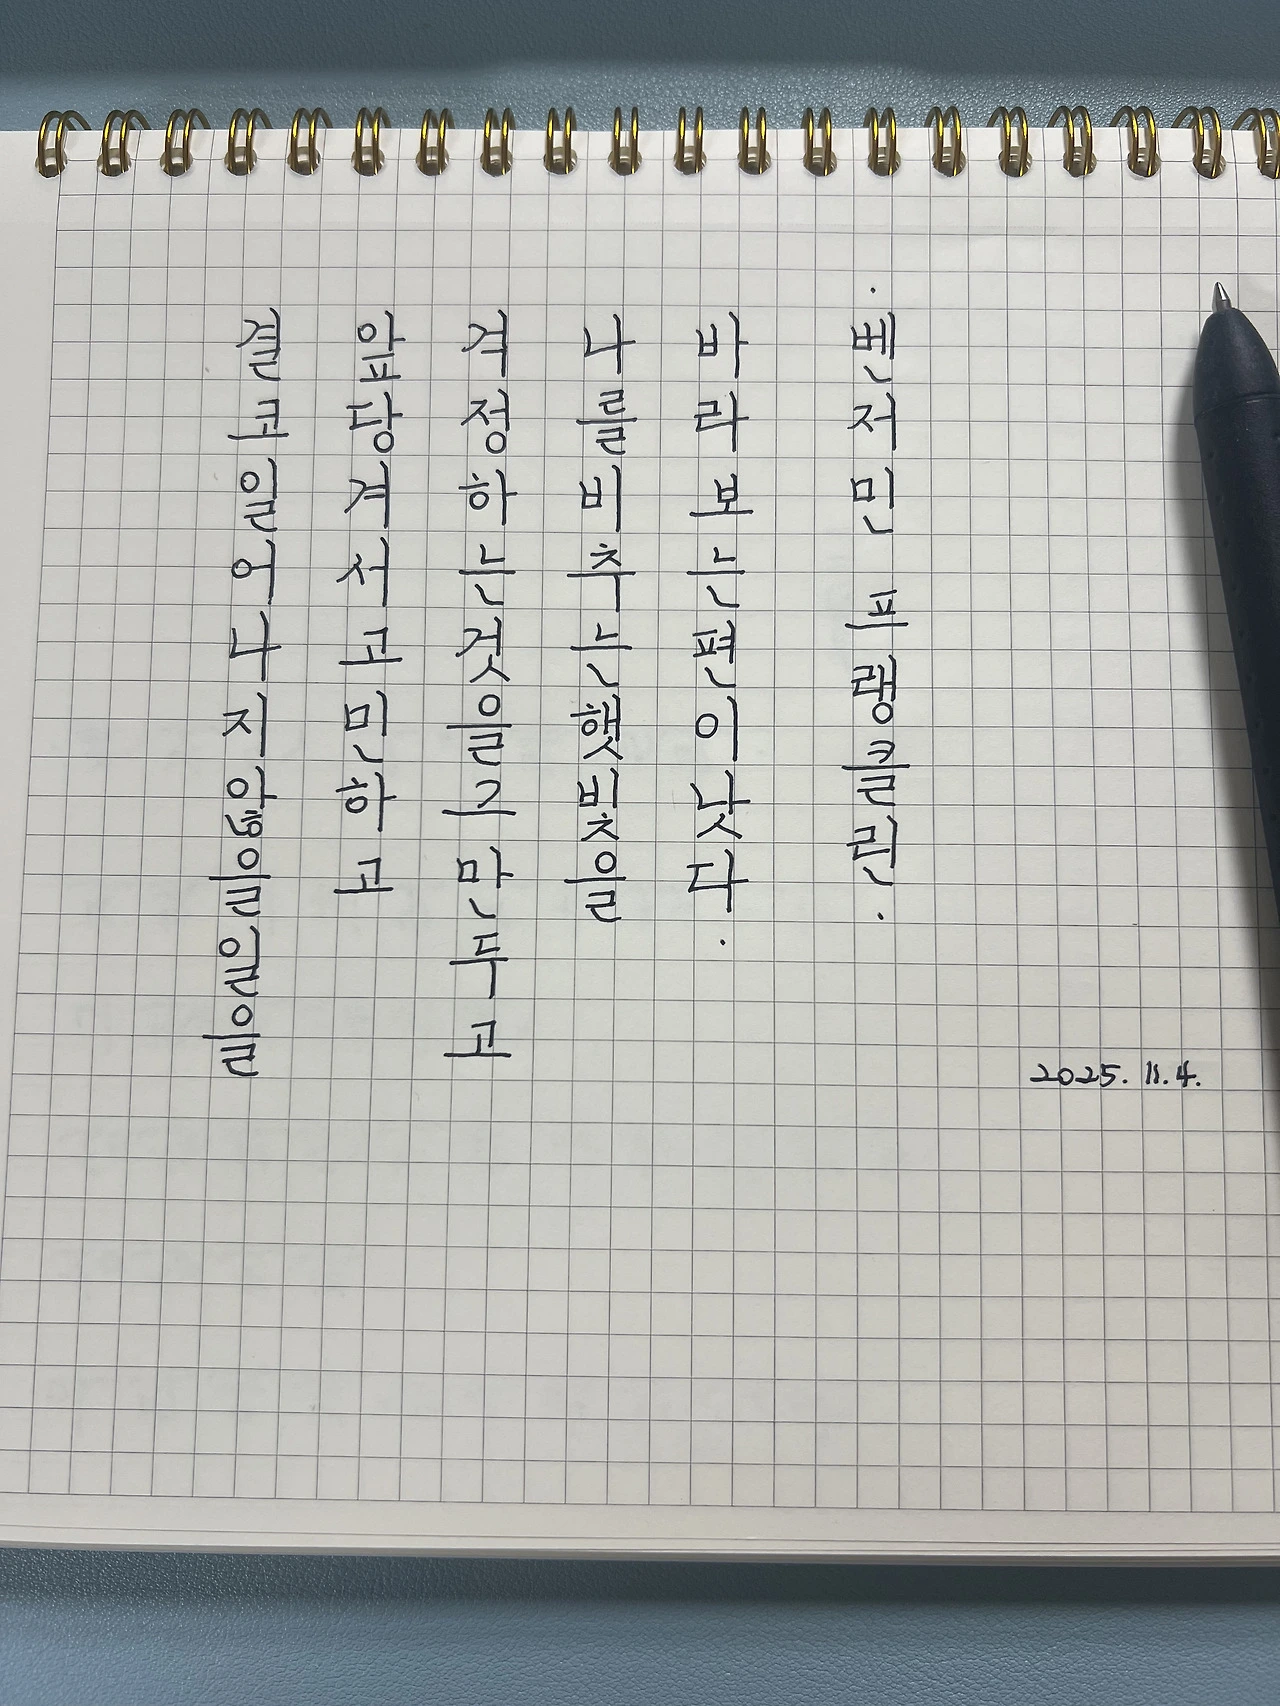 결코 일어나지 않을일을
앞당겨서 고민하고
걱정하는것을 그만두고
나를 비추는 햇빛을
바라보는 편이 낫다.
·벤저민 프랭클린.
2025. 11. 4.